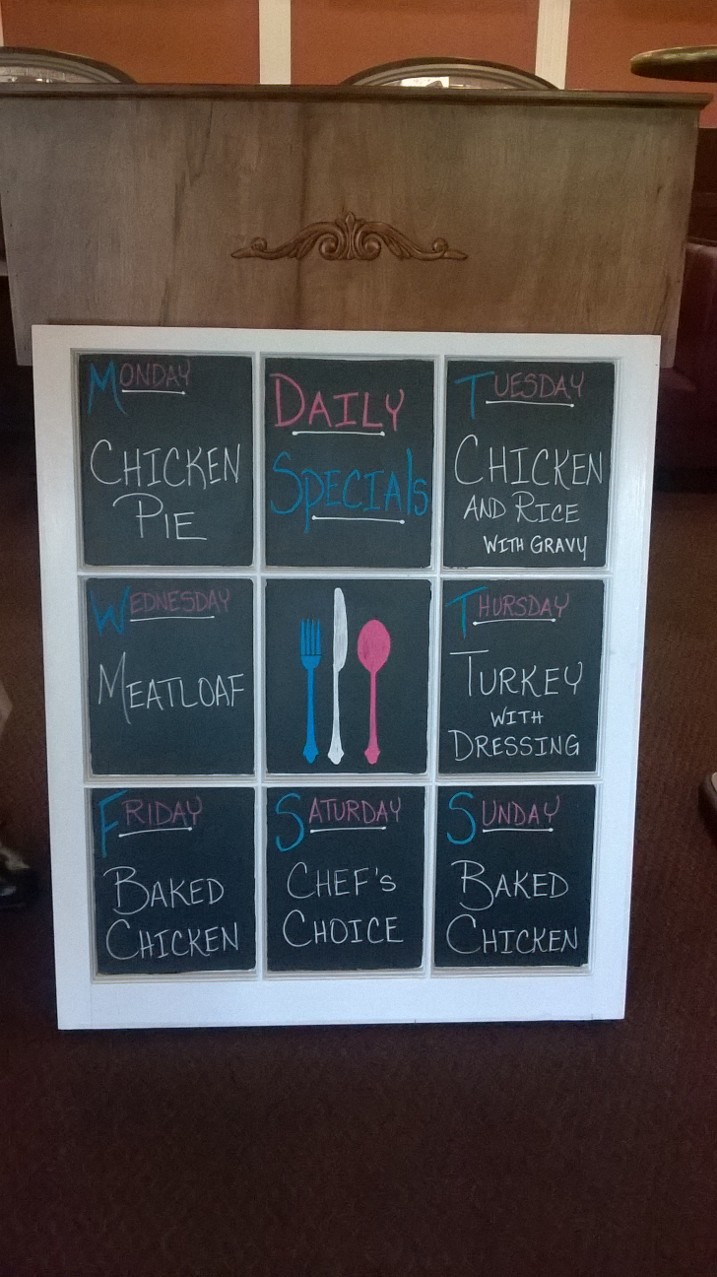 MONDAY
CHICKEN
PIE
DAILY
SPECIAls
TUESDAY
CHICKEN
AND RICE
WITH GRAVY
WEDNESDAY
MEATLOAF
THURSDAY
TURKEY
WITH
DRESSING
FRIDAY
BAKED
CHICKEN
SATURDAY
CHEF'S
CHOICE
SUNDAY
BAKED
CHICKEN